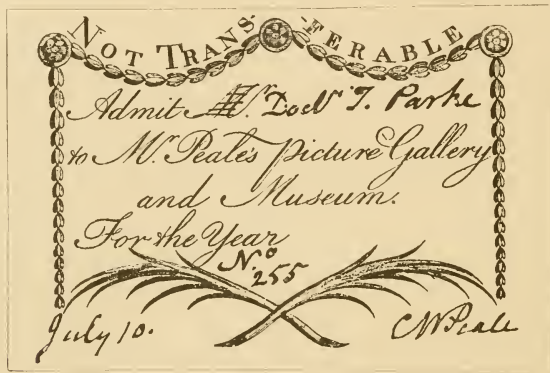 NOT TRANS-FERABLE
Admit Mr. Doctr. T. Parke
to Mr. Peale's Picture Gallery
and Museum.
For the Year
No.
255
July 10. CWPeale